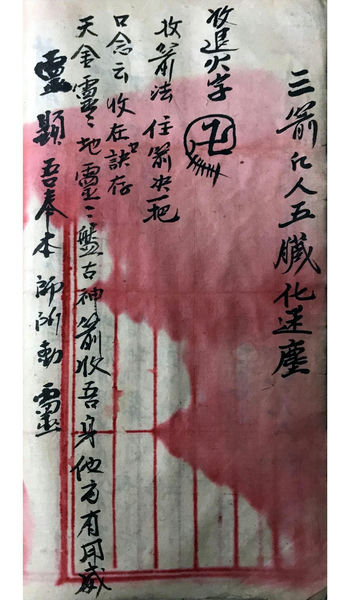 三箭人五臟化塵
收退火字 卍
收箭法 住箭决一把
口念云收在訣存
天金靈〻地靈〻盤古神箭收吾身他方有用威
靈顯吾奉本師所動靈